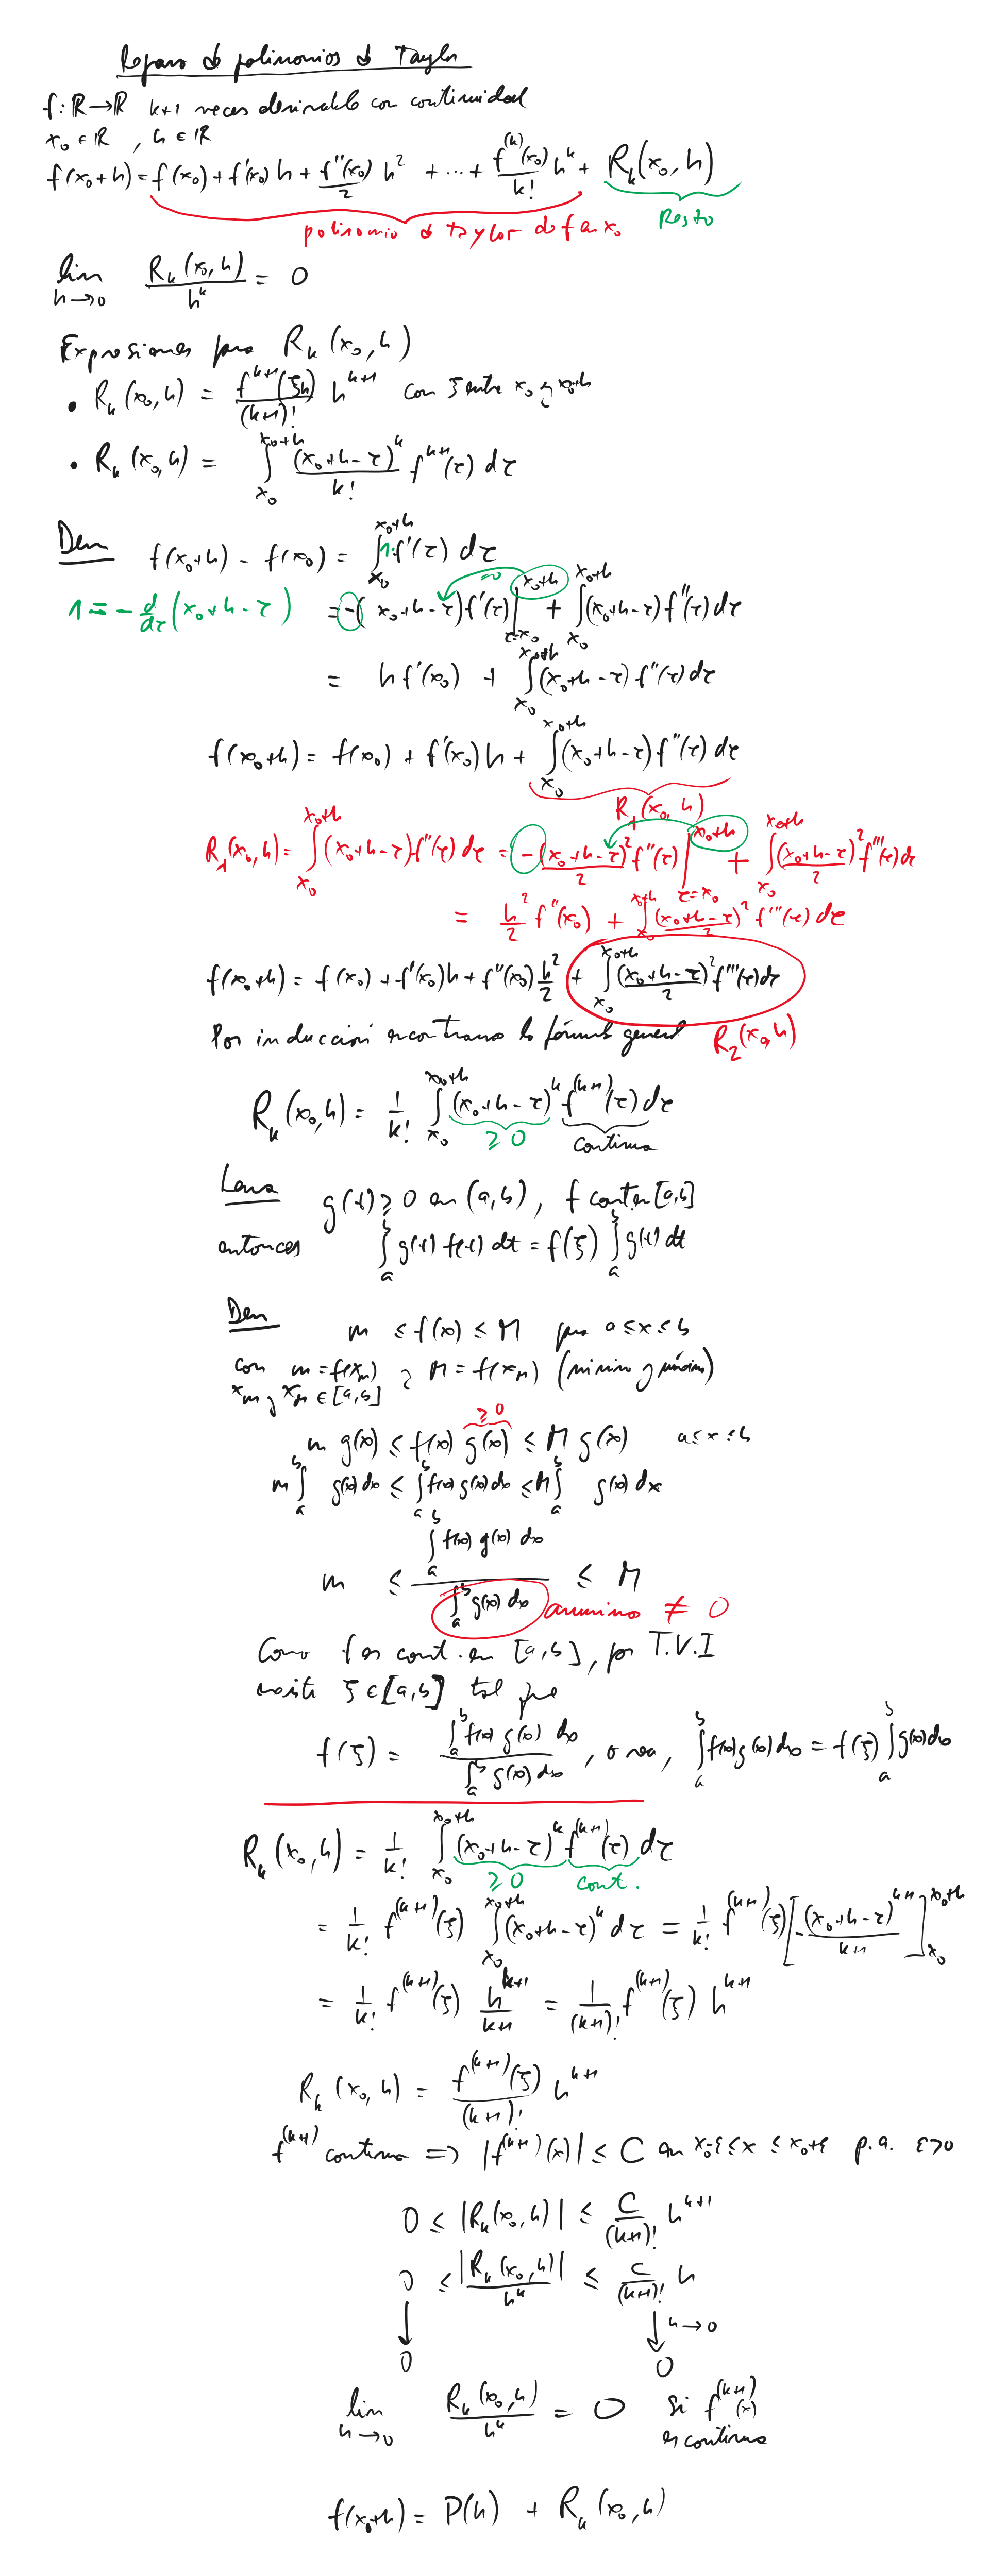 Repaso de polinomios de Taylor
f: ℝ→ℝ k+1 veces derivable con continuidad
x₀ ∈ ℝ, h ∈ ℝ
f(x₀+h) = f(x₀) + f'(x₀) h + f''(x₀)/2 h² + ... + f^(k)(x₀)/k! h^k + R_k(x₀,h)
polinomio de Taylor de f en x₀ Resto
lim_{h→0} R_k(x₀,h)/h^k = 0
Expresiones para R_k(x₀,h)
• R_k(x₀,h) = f^{k+1}(ξh)/(k+1)! h^{k+1} con ξ entre x₀ y x₀+h
• R_k(x₀,h) = ∫_{x₀}^{x₀+h} (x₀+h-τ)^k/k! f^{k+1}(τ) dτ
Dem f(x₀+h) - f(x₀) = ∫_{x₀}^{x₀+h} 1·f'(τ) dτ
1 = - d/dτ (x₀+h-τ) = -(x₀+h-τ) f'(τ) |_{τ=x₀}^{x₀+h} + ∫_{x₀}^{x₀+h} (x₀+h-τ) f''(τ) dτ
=0
= h f'(x₀) + ∫_{x₀}^{x₀+h} (x₀+h-τ) f''(τ) dτ
f(x₀+h) = f(x₀) + f'(x₀) h + ∫_{x₀}^{x₀+h} (x₀+h-τ) f''(τ) dτ
R₁(x₀,h)
R₁(x₀,h) = ∫_{x₀}^{x₀+h} (x₀+h-τ) f''(τ) dτ = -(x₀+h-τ)²/2 f''(τ) |_{τ=x₀}^{x₀+h} + ∫_{x₀}^{x₀+h} (x₀+h-τ)²/2 f'''(τ) dτ
= h²/2 f''(x₀) + ∫_{x₀}^{x₀+h} (x₀+h-τ)²/2 f'''(τ) dτ
f(x₀+h) = f(x₀) + f'(x₀) h + f''(x₀) h²/2 + ∫_{x₀}^{x₀+h} (x₀+h-τ)²/2 f'''(τ) dτ
Por inducción encontramos la fórmula general R₂(x₀,h)
R_k(x₀,h) = 1/k! ∫_{x₀}^{x₀+h} (x₀+h-τ)^k f^(k+1)(τ) dτ
≥ 0 continua
Lema g(t) ≥ 0 en (a,b), f cont en [a,b]
entonces ∫_a^b g(t) f(t) dt = f(ξ) ∫_a^b g(t) dt
Dem m ≤ f(x) ≤ M para a ≤ x ≤ b
con m = f(x_m) y M = f(x_M) (mínimo y máximo)
x_m y x_M ∈ [a,b]
≥ 0
m g(x) ≤ f(x) g(x) ≤ M g(x) a ≤ x ≤ b
m ∫_a^b g(x) dx ≤ ∫_a^b f(x) g(x) dx ≤ M ∫_a^b g(x) dx
m ≤ ∫_a^b f(x) g(x) dx / ∫_a^b g(x) dx ≤ M
asumimos ≠ 0
Como f es cont. en [a,b], por T.V.I
existe ξ ∈ [a,b] tal que
f(ξ) = ∫_a^b f(x) g(x) dx / ∫_a^b g(x) dx, o sea, ∫_a^b f(x) g(x) dx = f(ξ) ∫_a^b g(x) dx
R_k(x₀,h) = 1/k! ∫_{x₀}^{x₀+h} (x₀+h-τ)^k f^(k+1)(τ) dτ
≥ 0 cont.
= 1/k! f^(k+1)(ξ) ∫_{x₀}^{x₀+h} (x₀+h-τ)^k dτ = 1/k! f^(k+1)(ξ) [-(x₀+h-τ)^{k+1}/k+1]_{x₀}^{x₀+h}
= 1/k! f^(k+1)(ξ) h^{k+1}/k+1 = 1/(k+1)! f^(k+1)(ξ) h^{k+1}
R_k(x₀,h) = f^(k+1)(ξ)/(k+1)! h^{k+1}
f^(k+1) continua ⇒ |f^(k+1)(x)| ≤ C en x₀-ε ≤ x ≤ x₀+ε p.a. ε>0
0 ≤ |R_k(x₀,h)| ≤ C/(k+1)! h^{k+1}
0 ≤ |R_k(x₀,h)|/h^k ≤ C/(k+1)! h
↓ ↓ h→0
0 0
lim_{h→0} R_k(x₀,h)/h^k = 0 si f^(k+1)(x)
es continua
f(x₀+h) = P(h) + R_k(x₀,h)